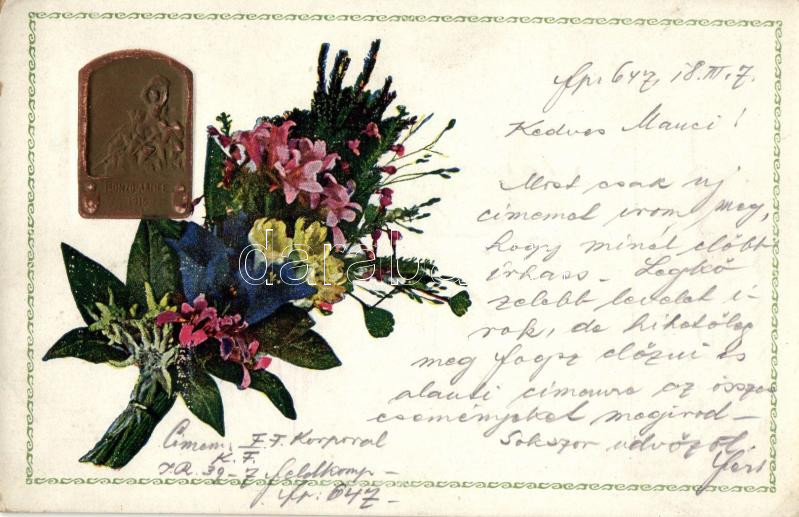 ISONZO-ARMEE
1915
Fp. 647, 18. III. 7.
Kedves Mauci!
Most csak uj
cimemet irom meg,
hogy minél előbb
írhass – Legkö
zelebb levelet i-
rok, de hihetőleg
meg fogsz előzni és
alanti címemre az összes
eseményeket megirod –
Sokszor üdvözöl
Cimem: E. F. Korporal
K. F.
I. R. 39 – 7 Feldkomp –
Fp: 647 –
darabanth